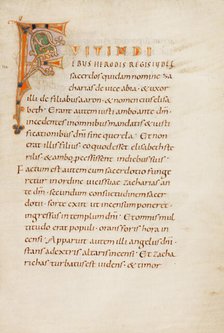 FUIT IN DI
EBUS HERODIS REGIS IUDEE
sacerdos quidam nomine za
charias de vice abia · & uxor
illi de filiabus aaron · & nomen eius elisa
beth · Erant autem iusti ambo ante dm̄ ·
incedentes in omnibus mandatis & in iusti
ficationibus dn̄i sine querela · Et non
erat illis filius eo quod esset elisabeth steri
rilis · & ambo processissent in diebus suis ·
Factum est autem cum sacerdotio funge
retur in ordine vicis suae zacharias an
te dm̄ · secundum consuetudinem sacer
dotii · sorte exiit ut incensum poneret
ingressus in templum dn̄i · Et omnis mul
titudo erat populi · orans foris hora in
censi · Apparuit autem illi angelus dn̄i ·
stans a dextris altaris incensi · Et zacha
rias turbatus est videns · & timor